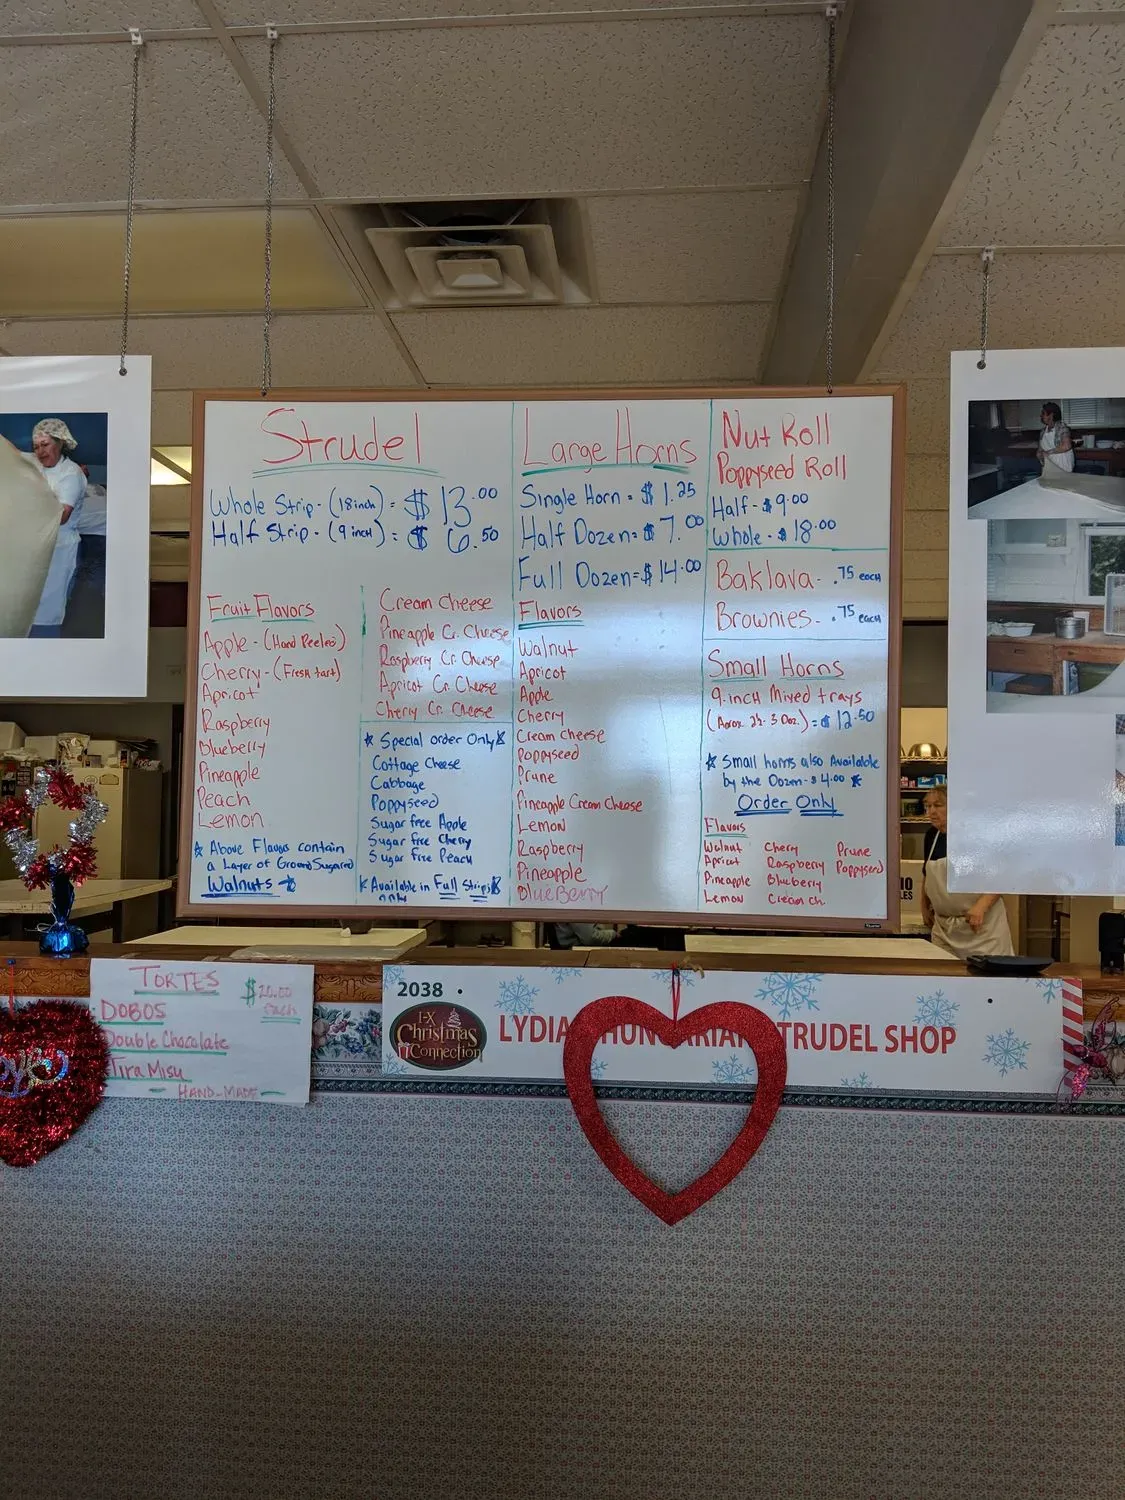 Strudel
Whole Strip - (18 inch) = $ 13.00
Half Strip - (9 inch) = $ 6.50
Fruit Flavors
Apple - (Hand Peeled)
Cherry - (Fresh tart)
Apricot
Raspberry
Blueberry
Pineapple
Peach
Lemon
* Above Flavors contain
a Layer of Ground Sugared
Walnuts
Cream Cheese
Pineapple Cr. Cheese
Raspberry Cr. Cheese
Apricot Cr. Cheese
Cherry Cr. Cheese
* Special order Only *
Cottage Cheese
Cabbage
Poppyseed
Sugar free Apple
Sugar free Cherry
Sugar free Peach
* Available in Full Strips *
only
Large Horns
Single Horn = $ 1.25
Half Dozen = $ 7.00
Full Dozen = $ 14.00
Flavors
Walnut
Apricot
Apple
Cherry
Cream Cheese
Poppyseed
Prune
Pineapple Cream Cheese
Lemon
Raspberry
Pineapple
BlueBerry
Nut Roll
Poppyseed Roll
Half - $ 9.00
Whole - $ 18.00
Baklava - .75 each
Brownies - .75 each
Small Horns
9 inch Mixed trays
= $ 12.50
* Small horns also Available
by the Dozen - $ 4.00 *
Order Only
Flavors
Walnut Cherry Prune
Apricot Raspberry Poppyseed
Pineapple Blueberry
Lemon Cream ch.
TORTES
$20.00
each
DOBOS
Double Chocolate
Tira Misu
- HAND-MADE -
2038
I-X
Christmas
Connection
LYDIA HUNGARIAN STRUDEL SHOP